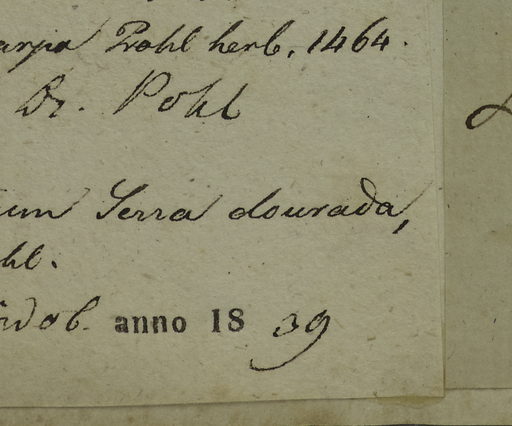 arpa Pohl herb. 1464.
Dr. Pohl
um Serra dourada,
hl.
anno 18 39